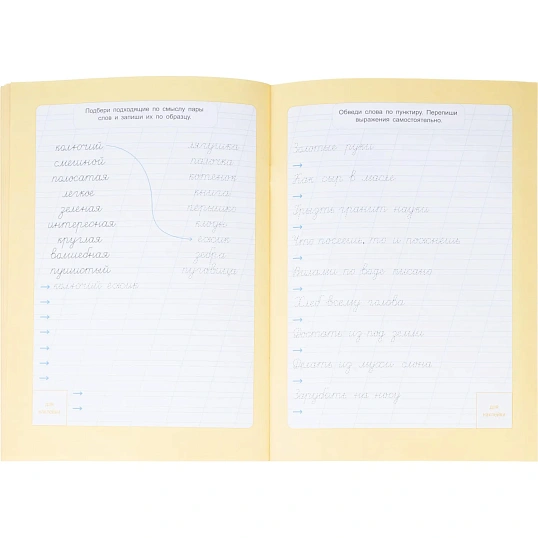 Подбери подходящие по смыслу пары
слов и запиши их по образцу.
колючий лягушка
смешной палочка
полосатая котёнок
лёгкое книга
зелёная пёрышко
интересная клоун
круглая ёжик
волшебная зебра
пушистый пуговица
колючий ёжик
для наклейки
Обведи слова по пунктиру. Перепиши
выражения самостоятельно.
Золотые руки
Как сыр в масле
Грызть гранит науки
Что посеешь, то и пожнёшь
Вилами по воде писано
Хлеб всему голова
Достать из под земли
Делать из мухи слона
Зарубить на носу
для наклейки